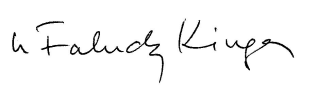 Faludy Kinga